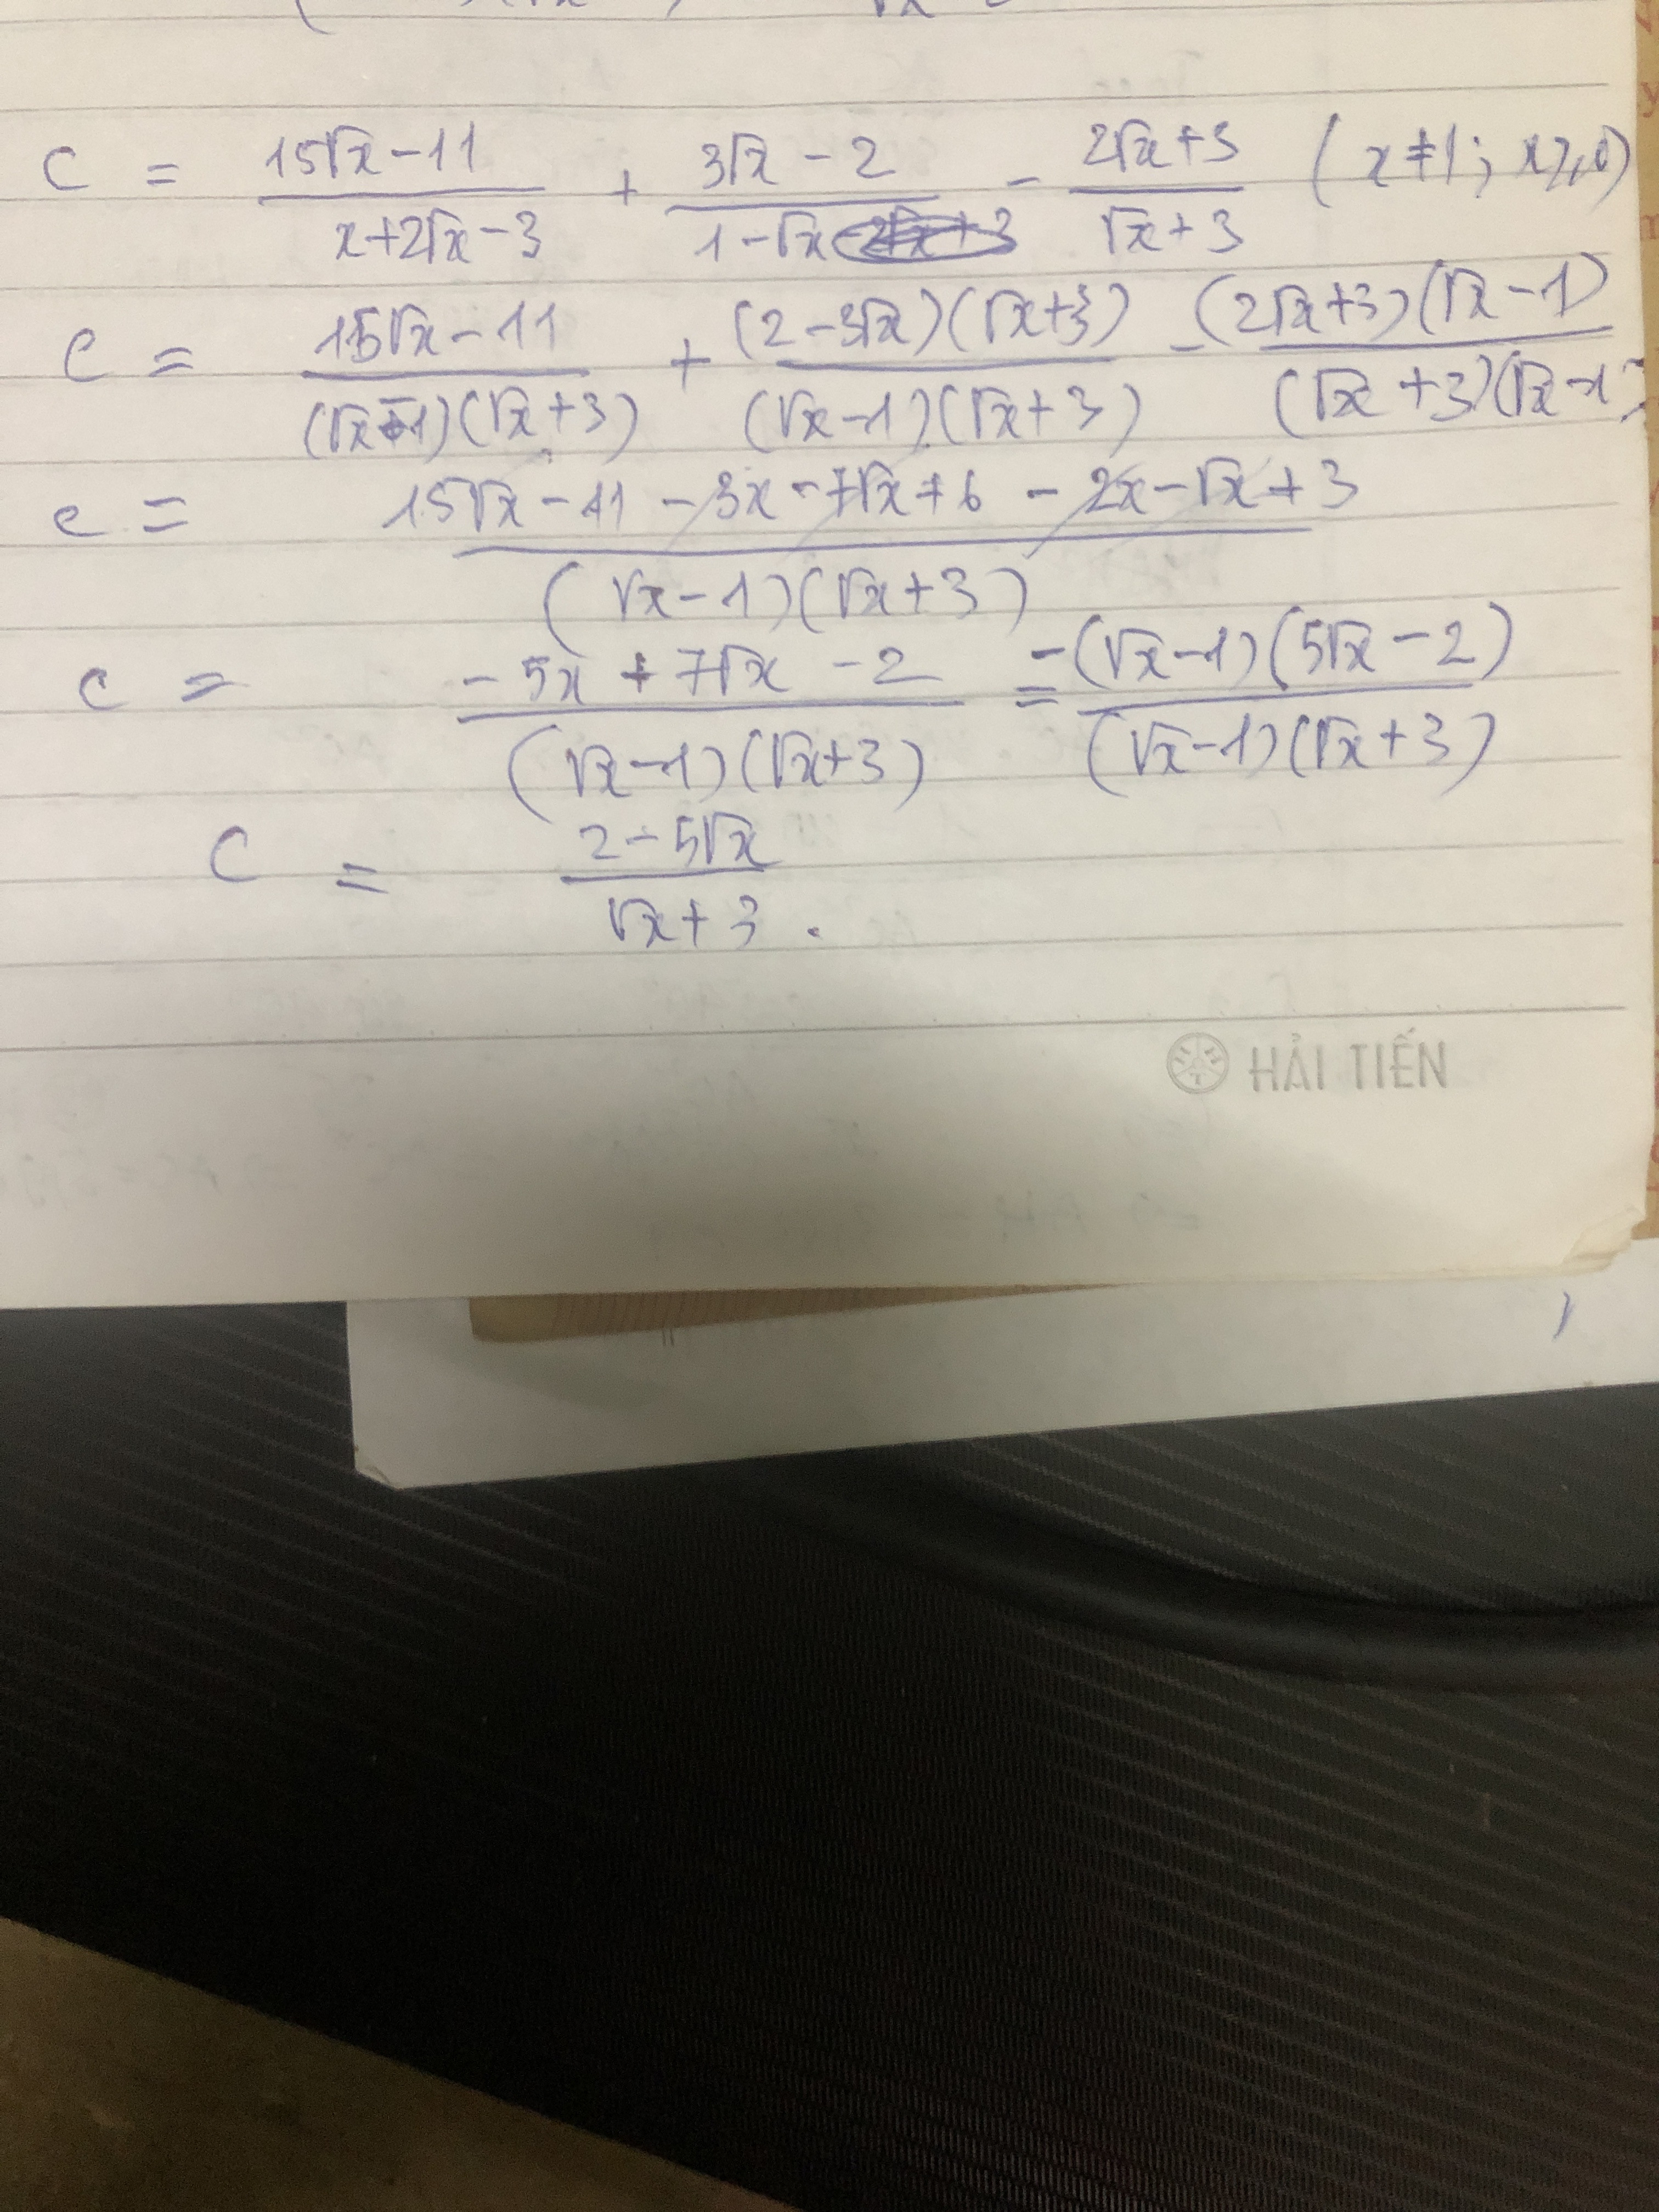 C = \frac{15\sqrt{x}-11}{x+2\sqrt{x}-3} + \frac{3\sqrt{x}-2}{1-\sqrt{x}} - \frac{2\sqrt{x}+3}{\sqrt{x}+3} (x ≠ 1; x ≥ 0)
C = \frac{15\sqrt{x}-11}{(\sqrt{x}-1)(\sqrt{x}+3)} + \frac{(2-3\sqrt{x})(\sqrt{x}+3)}{(\sqrt{x}-1)(\sqrt{x}+3)} - \frac{(2\sqrt{x}+3)(\sqrt{x}-1)}{(\sqrt{x}+3)(\sqrt{x}-1)}
C = \frac{15\sqrt{x}-11-3x-7\sqrt{x}+6-2x-\sqrt{x}+3}{(\sqrt{x}-1)(\sqrt{x}+3)}
C = \frac{-5x+7\sqrt{x}-2}{(\sqrt{x}-1)(\sqrt{x}+3)} = \frac{-(\sqrt{x}-1)(5\sqrt{x}-2)}{(\sqrt{x}-1)(\sqrt{x}+3)}
C = \frac{2-5\sqrt{x}}{\sqrt{x}+3}.
HẢI TIẾN